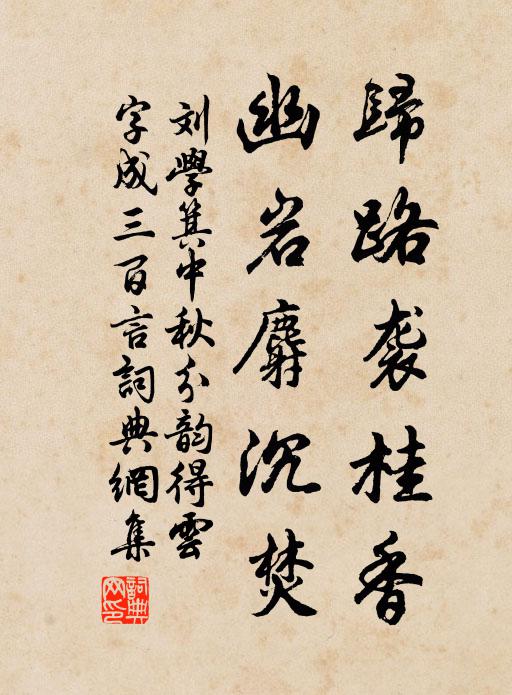 歸路袭桂香
幽岩麝沉焚
刘學箕中秋分韵得雲
字成三百言詞典網集
詞典网印